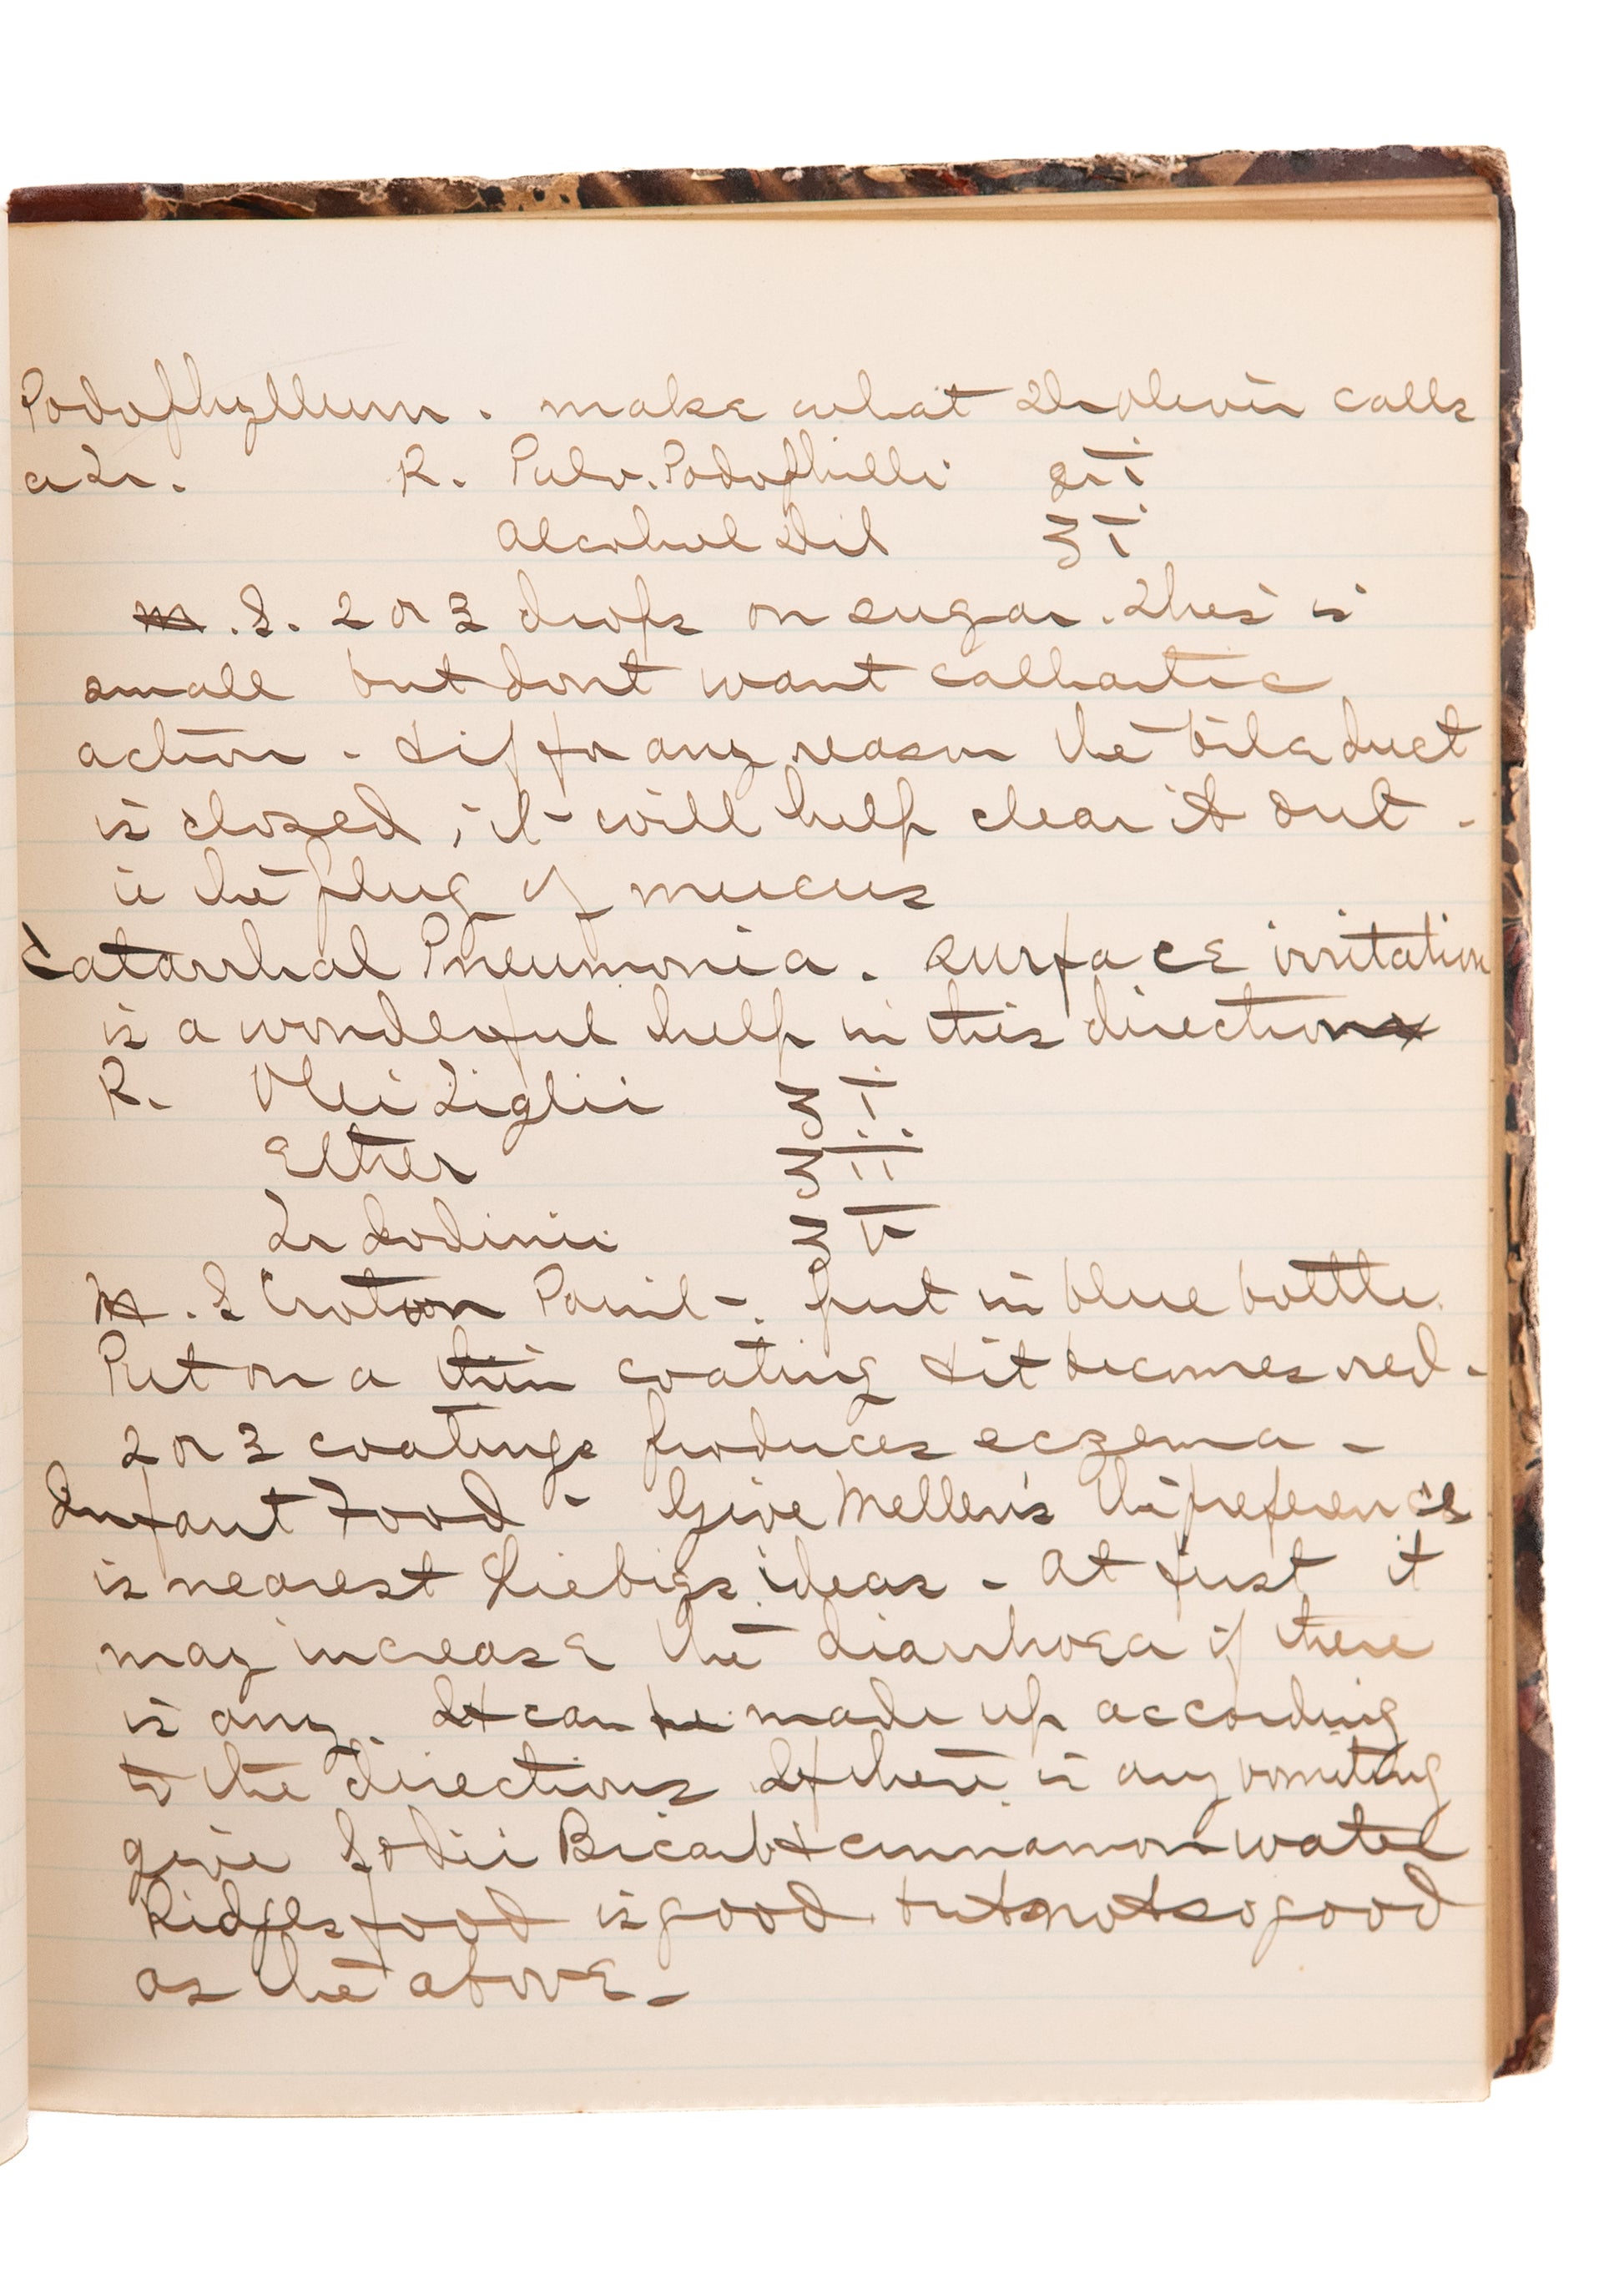 Podophyllum. make what Dr Oliver calls
a Tr. R. Pulv. Podophilli gr i
Alcohol Dil ʒ i
M. S. 2 or 3 drops on sugar. This is
small but dont want cathartic
action - & if for any reason the bile duct
is closed, it will help clear it out -
ie the plug of mucus
Catarrhal Pneumonia. surface irritation
is a wonderful help in this direction
R. Olei Tiglii ʒ i
Ether ʒ ii
Tr Iodinii ʒ v
M. S Croton Paint -. put in blue bottle.
Put on a thin coating & it becomes red -
2 or 3 coatings produces eczema -
Infant Food - Give Mellen's the preference
is nearest Liebigs ideas - At first it
may increase the diarrhoea if there
is any. It can be made up according
to the directions If there is any vomiting
give Sodii Bicarb & cinnamon water
Ridges food is good but not so good
as the above -